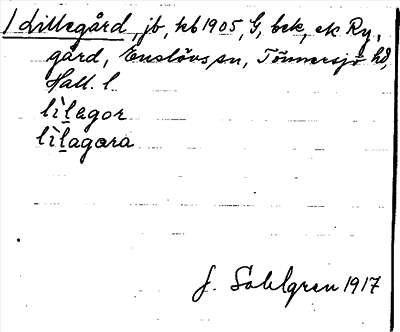 1 Lillegård, jb, kb 1905 G, bek, ek Ry,
gård, Enslövs sn, Tönnersjö hd,
Hall. l.
lìl̲agor
lìl̲agora
J. Sahlgren 1917